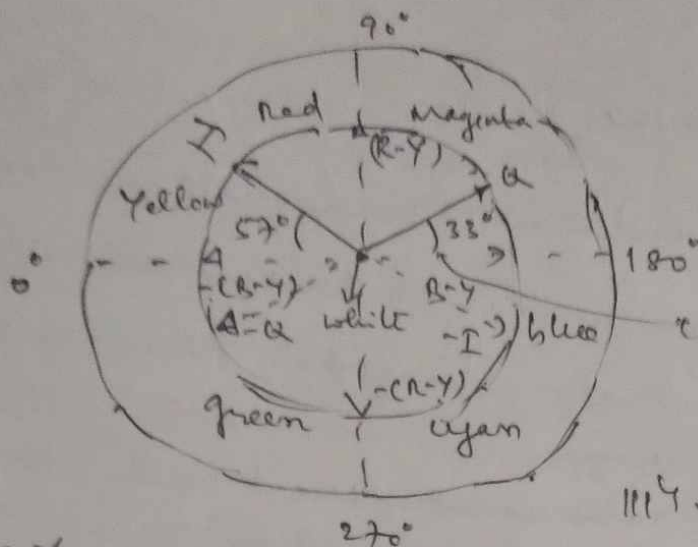 90°
Red Magenta
I (R-Y) Q
Yellow 57° 33°
0° 180°
-(B-Y) B-Y
-Q white -I blue
-(R-Y)
green cyan
111y.
270°